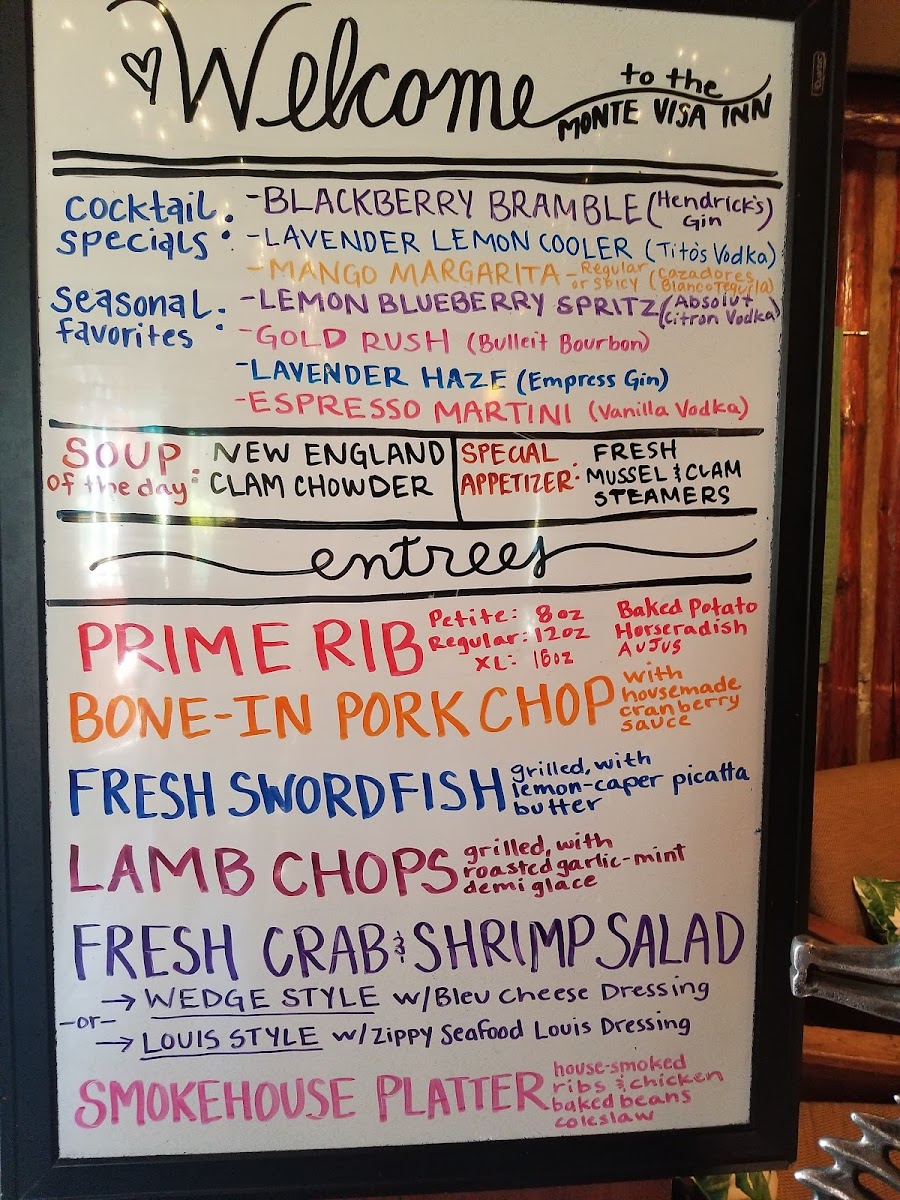 Welcome to the
MONTE VISA INN
Cocktail specials: -BLACKBERRY BRAMBLE (Hendrick's Gin)
-LAVENDER LEMON COOLER (Tito's Vodka)
-MANGO MARGARITA - Regular or spicy (Cazadores Blanco Tequila)
Seasonal favorites: -LEMON BLUEBERRY SPRITZ (Absolut Citron Vodka)
-GOLD RUSH (Bulleit Bourbon)
-LAVENDER HAZE (Empress Gin)
-ESPRESSO MARTINI (Vanilla Vodka)
SOUP of the day: NEW ENGLAND
CLAM CHOWDER
SPECIAL APPETIZER: FRESH
MUSSEL & CLAM
STEAMERS
entrees
PRIME RIB
Petite: 8oz
Regular: 12oz
XL: 16oz
Baked Potato
Horseradish
AuJus
BONE-IN PORK CHOP
with
housemade
cranberry
sauce
FRESH SWORDFISH
grilled, with
lemon-caper picatta
butter
LAMB CHOPS
grilled, with
roasted garlic-mint
demi glace
FRESH CRAB & SHRIMP SALAD
→ WEDGE STYLE w/Bleu Cheese Dressing
-or-
→ LOUIS STYLE w/Zippy Seafood Louis Dressing
SMOKEHOUSE PLATTER
house-smoked
ribs & chicken
baked beans
coleslaw